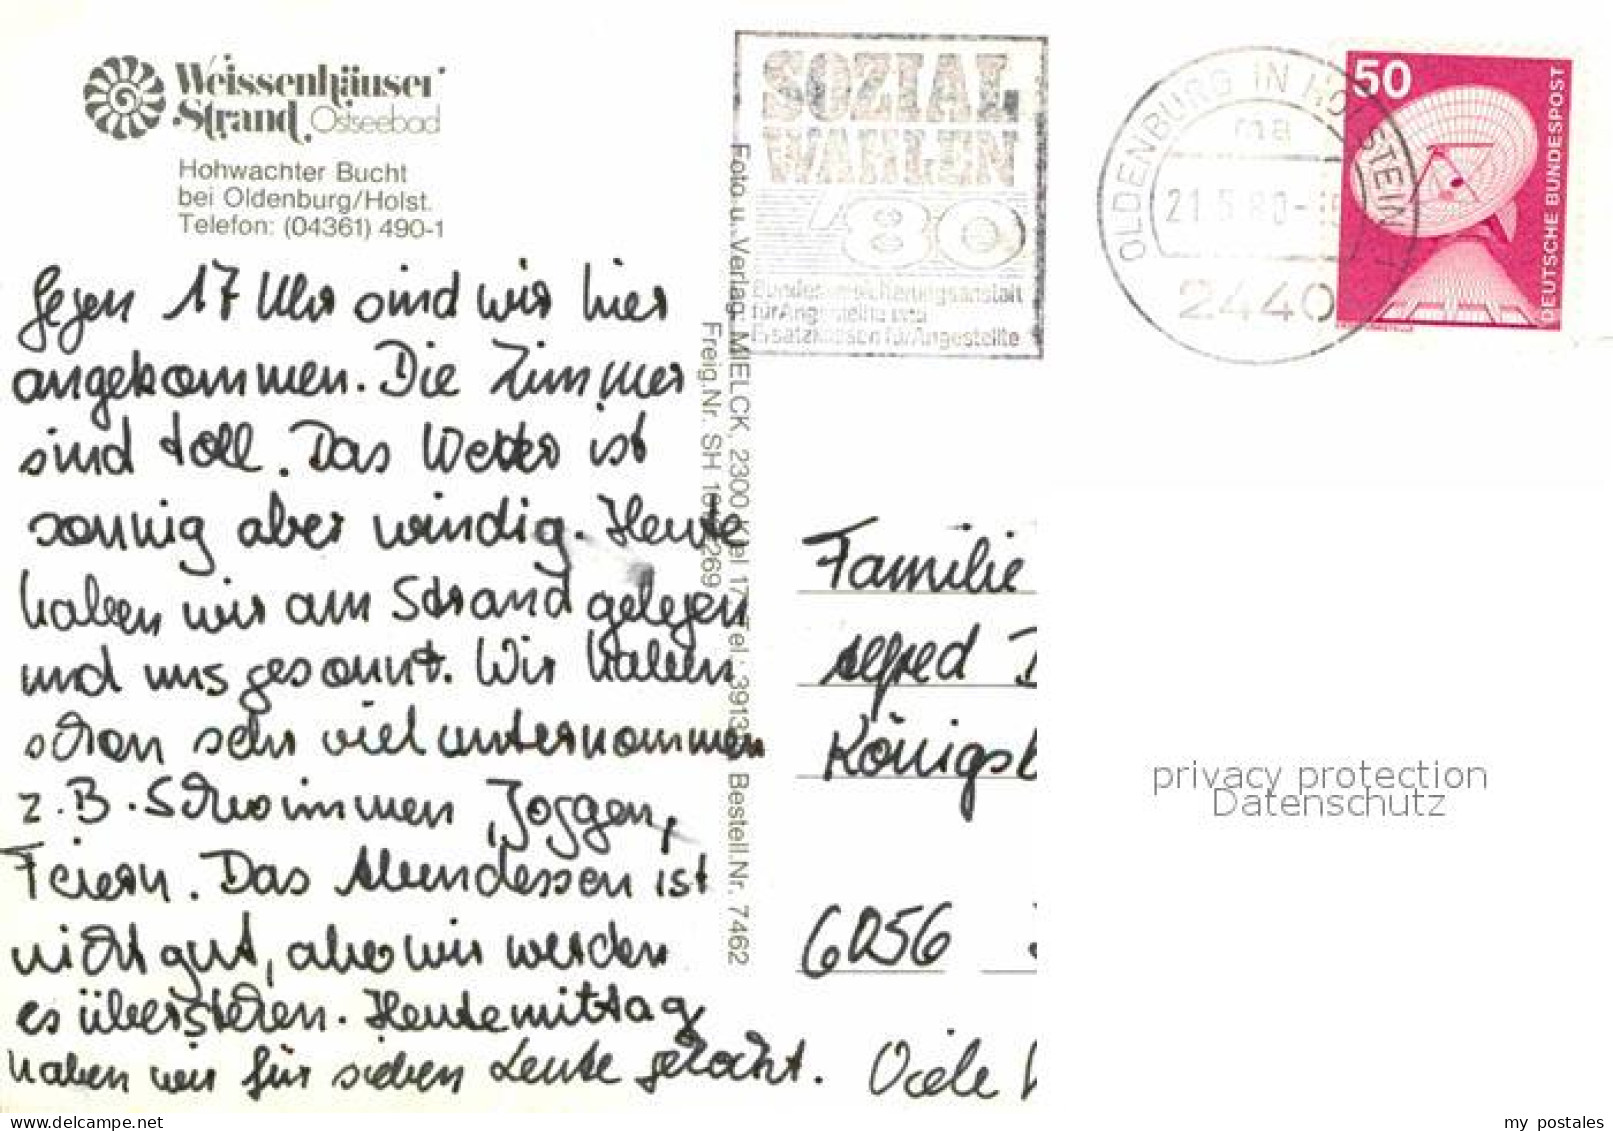 Weissenhäuser
Strand Ostseebad
Hohwachter Bucht
bei Oldenburg/Holst.
Telefon: (04361) 490-1
Gegen 17 Uhr sind wir hier
angekommen. Die Zimmer
sind toll. Das Wetter ist
sonnig aber windig. Heute
haben wir am Strand gelegen
und uns gesonnt. Wir haben
schon sehr viel unternommen
z.B. Schwimmen, Joggen,
Feiern. Das Abendessen ist
nicht gut, aber wir werden
es überstehen. Heutemittag
haben wir für sieben Leute gekocht. Viele
Foto u. Verlag: MIELCK, 2300 Kiel 17 Tel.: 3913 Bestell.Nr. 7462
Freig.Nr. SH 269
SOZIAL
WAHLEN
'80
Bundesversicherungsanstalt
für Angestellte und
Ersatzkassen für Angestellte
OLDENBURG IN HOLSTEIN
ma
21.5.80
2440
50
DEUTSCHE BUNDESPOST
Familie
Alfred
Königsb
6056
privacy protection
Datenschutz
www.delcampe.net
my postales